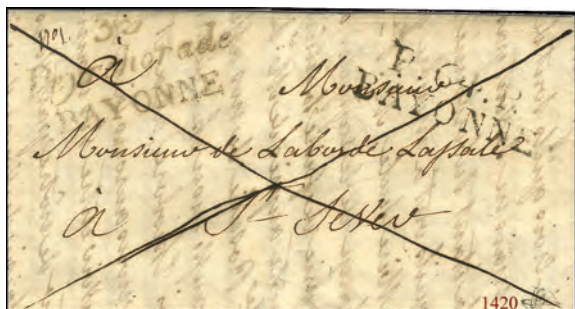 39
Peyrehorade
BAYONNE
P. 64. P.
BAYONNE
à Monsieur
Monsieur de Laborde Lassale
à St Sever
1420